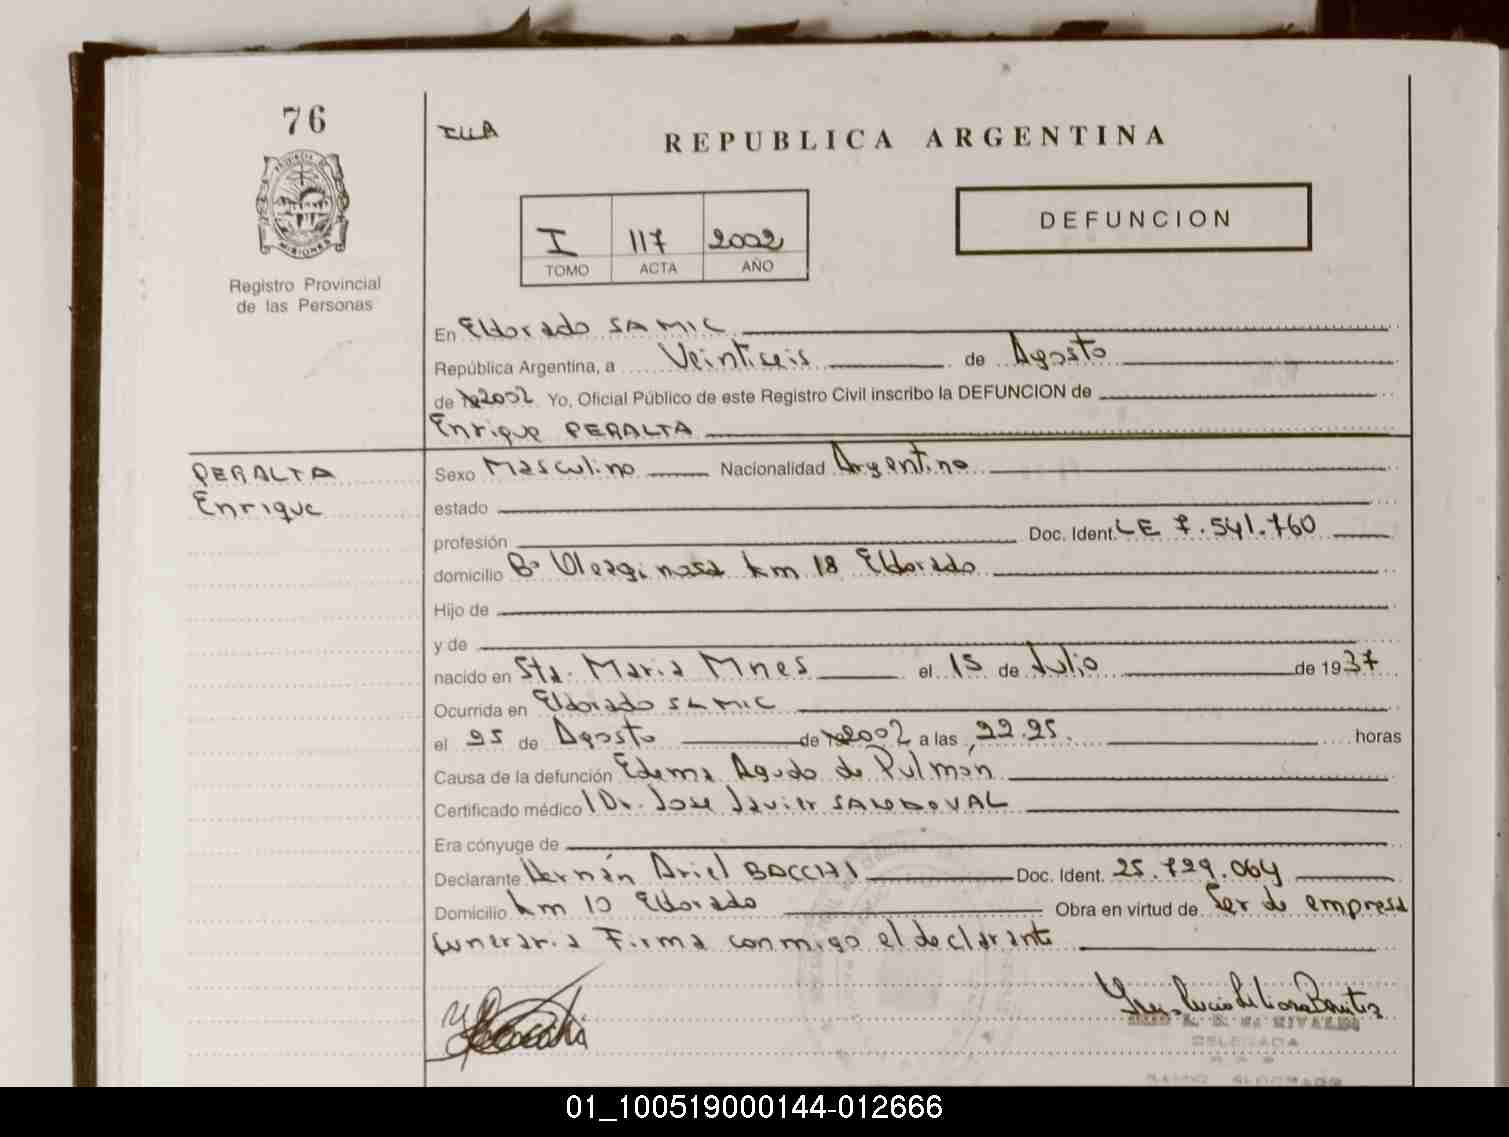 76
REPUBLICA ARGENTINA
PROVINCIA DE
MISIONES
Registro Provincial
de las Personas
DEFUNCION
I 117 2002
TOMO ACTA AÑO
En Eldorado SAMIC
República Argentina, a Veintiseis de Agosto
de 2002 Yo, Oficial Público de este Registro Civil inscribo la DEFUNCION de
Enrique PERALTA
PERALTA
Enrique
Sexo Masculino Nacionalidad Argentino
estado
profesión Doc. Ident. LE 7.541.760
domicilio Bº km 18 Eldorado
Hijo de
y de
nacido en Sta. Maria Mnes el 15 de Julio de 1937
Ocurrida en Eldorado SAMIC
el 25 de Agosto de 2002 a las 22.25. horas
Causa de la defunción Edema Agudo de Pulmon
Certificado médico Dr. Jose Javier SANDOVAL
Era cónyuge de
Declarante Hernán Ariel BOCCHI Doc. Ident. 25.729.064
Domicilio km 10 Eldorado Obra en virtud de Ser de empresa
funeraria Firma conmigo el declarante
DELEGADA
01_100519000144-012666